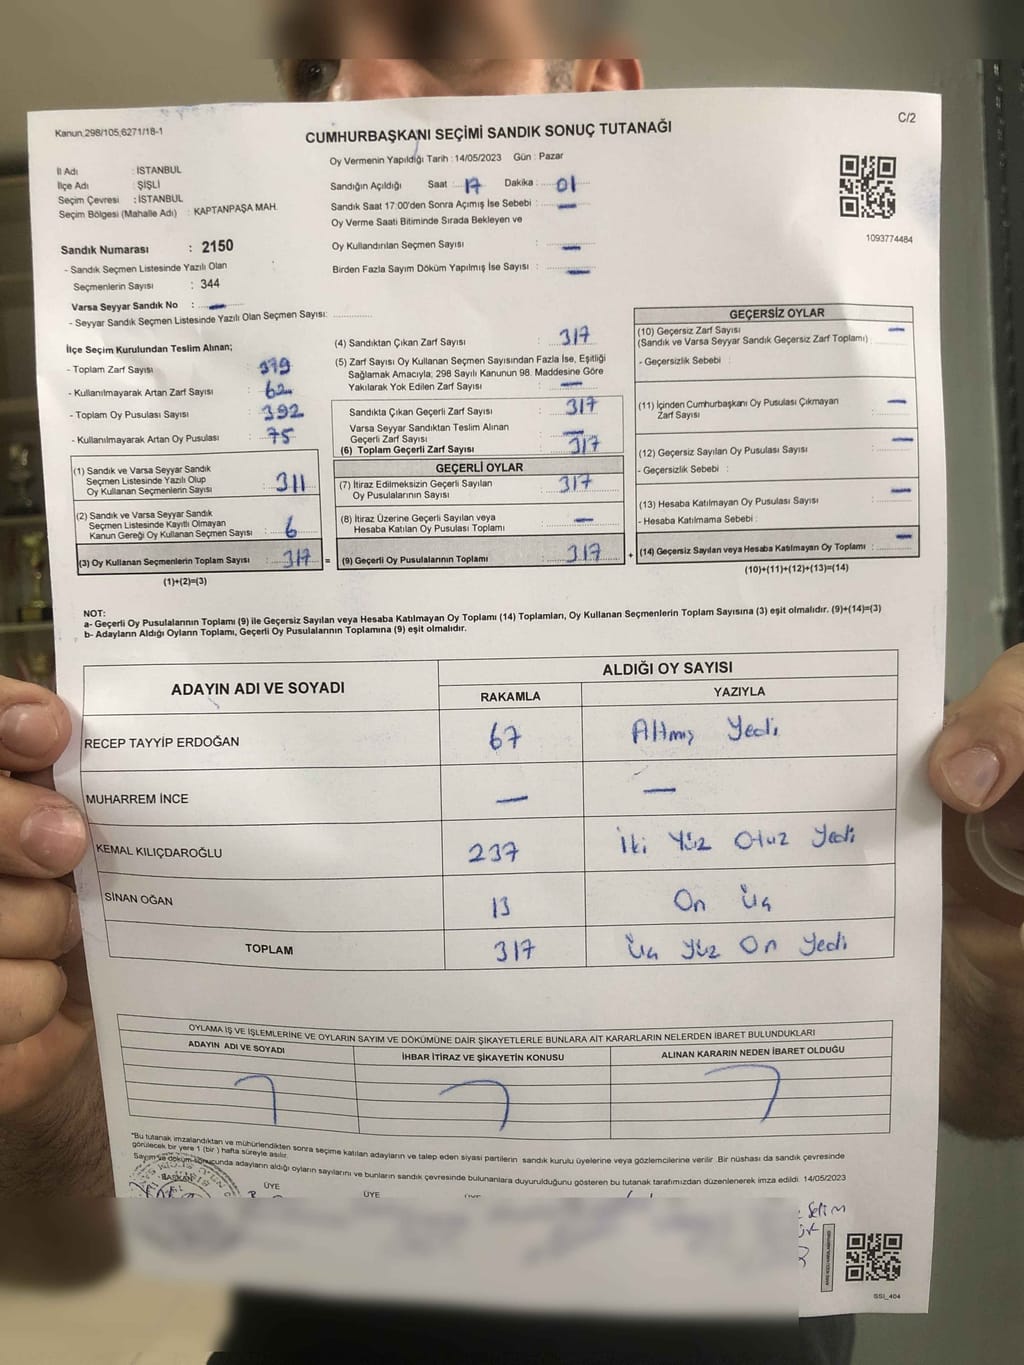 Kanun,298/105,6271/18-1
CUMHURBAŞKANI SEÇİMİ SANDIK SONUÇ TUTANAĞI
C/2
İl Adı : İSTANBUL
İlçe Adı : ŞİŞLİ
Seçim Çevresi : İSTANBUL
Seçim Bölgesi (Mahalle Adı) : KAPTANPAŞA MAH.
Oy Vermenin Yapıldığı Tarih : 14/05/2023 Gün : Pazar
Sandığın Açıldığı Saat : 17 Dakika : 01
Sandık Saat 17:00'den Sonra Açımış İse Sebebi : —
Oy Verme Saati Bitiminde Sırada Bekleyen ve
Oy Kullandırılan Seçmen Sayısı : —
Birden Fazla Sayım Döküm Yapılmış İse Sayısı : —
1093774484
Sandık Numarası : 2150
- Sandık Seçmen Listesinde Yazılı Olan :
Seçmenlerin Sayısı : 344
Varsa Seyyar Sandık No : —
- Seyyar Sandık Seçmen Listesinde Yazılı Olan Seçmen Sayısı:
İlçe Seçim Kurulundan Teslim Alınan;
- Toplam Zarf Sayısı : 379
- Kullanılmayarak Artan Zarf Sayısı : 62
- Toplam Oy Pusulası Sayısı : 392
- Kullanılmayarak Artan Oy Pusulası : 75
(1) Sandık ve Varsa Seyyar Sandık
Seçmen Listesinde Yazılı Olup
Oy Kullanan Seçmenlerin Sayısı : 311
(2) Sandık ve Varsa Seyyar Sandık
Seçmen Listesinde Kayıtlı Olmayan
Kanun Gereği Oy Kullanan Seçmen Sayısı : 6
(3) Oy Kullanan Seçmenlerin Toplam Sayısı : 317 =
(1)+(2)=(3)
(4) Sandıktan Çıkan Zarf Sayısı : 317
(5) Zarf Sayısı Oy Kullanan Seçmen Sayısından Fazla İse, Eşitliği
Sağlamak Amacıyla; 298 Sayılı Kanunun 98. Maddesine Göre
Yakılarak Yok Edilen Zarf Sayısı : —
Sandıkta Çıkan Geçerli Zarf Sayısı : 317
Varsa Seyyar Sandıktan Teslim Alınan
Geçerli Zarf Sayısı : —
(6) Toplam Geçerli Zarf Sayısı : 317
GEÇERLİ OYLAR
(7) İtiraz Edilmeksizin Geçerli Sayılan
Oy Pusulalarının Sayısı : 317
(8) İtiraz Üzerine Geçerli Sayılan veya
Hesaba Katılan Oy Pusulası Toplamı : —
(9) Geçerli Oy Pusulalarının Toplamı : 317 +
GEÇERSİZ OYLAR
(10) Geçersiz Zarf Sayısı —
(Sandık ve Varsa Seyyar Sandık Geçersiz Zarf Toplamı) :
- Geçersizlik Sebebi :
(11) İçinden Cumhurbaşkanı Oy Pusulası Çıkmayan —
Zarf Sayısı :
(12) Geçersiz Sayılan Oy Pusulası Sayısı : —
- Geçersizlik Sebebi :
(13) Hesaba Katılmayan Oy Pusulası Sayısı : —
- Hesaba Katılmama Sebebi :
(14) Geçersiz Sayılan veya Hesaba Katılmayan Oy Toplamı : —
(10)+(11)+(12)+(13)=(14)
NOT:
a- Geçerli Oy Pusulalarının Toplamı (9) ile Geçersiz Sayılan veya Hesaba Katılmayan Oy Toplamı (14) Toplamları, Oy Kullanan Seçmenlerin Toplam Sayısına (3) eşit olmalıdır. (9)+(14)=(3)
b- Adayların Aldığı Oyların Toplamı, Geçerli Oy Pusulalarının Toplamına (9) eşit olmalıdır.
ADAYIN ADI VE SOYADI
ALDIĞI OY SAYISI
RAKAMLA YAZIYLA
RECEP TAYYİP ERDOĞAN 67 Altmış Yedi
MUHARREM İNCE — —
KEMAL KILIÇDAROĞLU 237 İki Yüz Otuz Yedi
SİNAN OĞAN 13 On Üç
TOPLAM 317 Üç Yüz On Yedi
OYLAMA İŞ VE İŞLEMLERİNE VE OYLARIN SAYIM VE DÖKÜMÜNE DAİR ŞİKAYETLERLE BUNLARA AİT KARARLARIN NELERDEN İBARET BULUNDUKLARI
ADAYIN ADI VE SOYADI İHBAR İTİRAZ VE ŞİKAYETİN KONUSU ALINAN KARARIN NEDEN İBARET OLDUĞU
*Bu tutanak imzalandıktan ve mühürlendikten sonra seçime katılan adayların ve talep eden siyasi partilerin sandık kurulu üyelerine veya gözlemcilerine verilir. Bir nüshası da sandık çevresinde
görülecek bir yere 1 (bir) hafta süreyle asılır.
Sayım ve döküm sonucunda adayların aldığı oyların sayılarını ve bunların sandık çevresinde bulunanlara duyurulduğunu gösteren bu tutanak tarafımızdan düzenlenerek imza edildi. 14/05/2023
BAŞKAN ÜYE ÜYE
Selim
SSİ_404